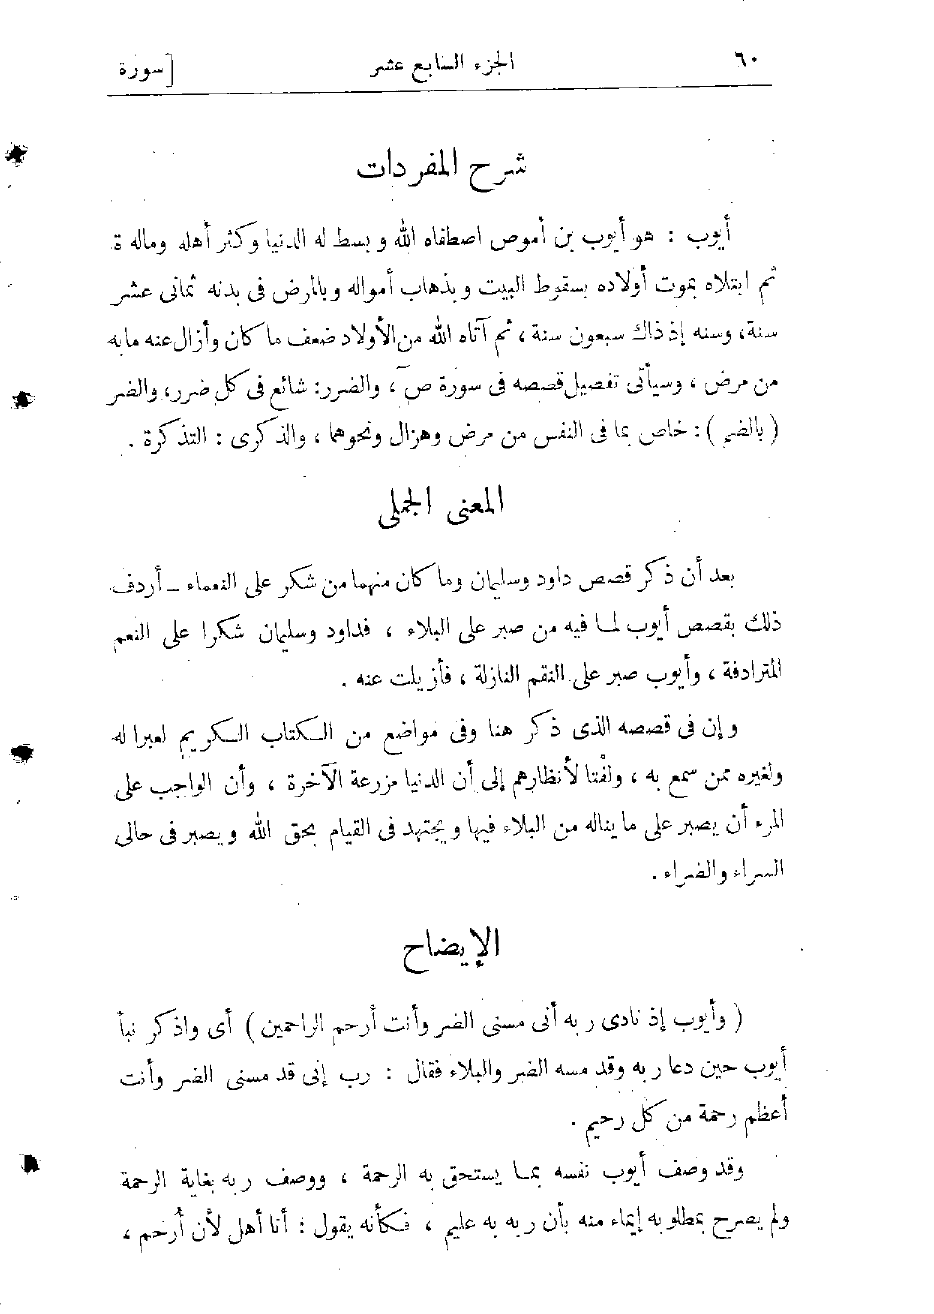 ٦٠ الجزء السابع عشر [سورة
شرح المفردات
أيوب : هو أيوب بن أموص اصطفاه الله وبسط له الدنيا وكثر أهله وماله ة
ثم ابتلاه بموت أولاده بسقوط البيت وبذهاب أمواله وبالمرض فى بدنه ثمانى عشر
سنة، وسنه إذ ذاك سبعون سنة ، ثم آتاه الله من الأولاد ضعف ما كان وأزال عنه ما به
من مرض ، وسيأتى تفصيل قصصه فى سورة صۤ ، والضرر: شائع فى كل ضرر، والضر
( بالضم ) : خاص بما فى النفس من مرض وهزال ونحوهما ، والذكرى : التذكرة .
المعنى الجملى
بعد أن ذكر قصص داود وسليمان وما كان منهما من شكر على النعماء – أردف
ذلك بقصص أيوب لما فيه من صبر على البلاء ، فداود وسليمان شكرا على النعم
المترادفة ، وأيوب صبر على النقم النازلة ، فأزيلت عنه .
وإن فى قصصه الذى ذكر هنا وفى مواضع من الكتاب الكريم لعبرا له
ولغيره ممن سمع به ، ولفْتا لأنظارهم إلى أن الدنيا مزرعة الآخرة ، وأن الواجب على
المرء أن يصبر على ما يناله من البلاء فيها ويجتهد فى القيام بحق الله ويصبر فى حالى
السراء والضراء .
الإيضاح
( وأيوب إذ نادى ربه أنى مسنى الضر وأنت أرحم الراحمين ) أى واذكر نبأ
أيوب حين دعا ربه وقد مسه الضر والبلاء فقال : رب إنى قد مسنى الضر وأنت
أعظم رحمة من كل رحيم .
وقد وصف أيوب نفسه بما يستحق به الرحمة ، ووصف ربه بغاية الرحمة
ولم يصرح بمطلوبه إيماء منه بأن ربه به عليم ، فكأنه يقول : أنا أهل لأن أُرحم ،